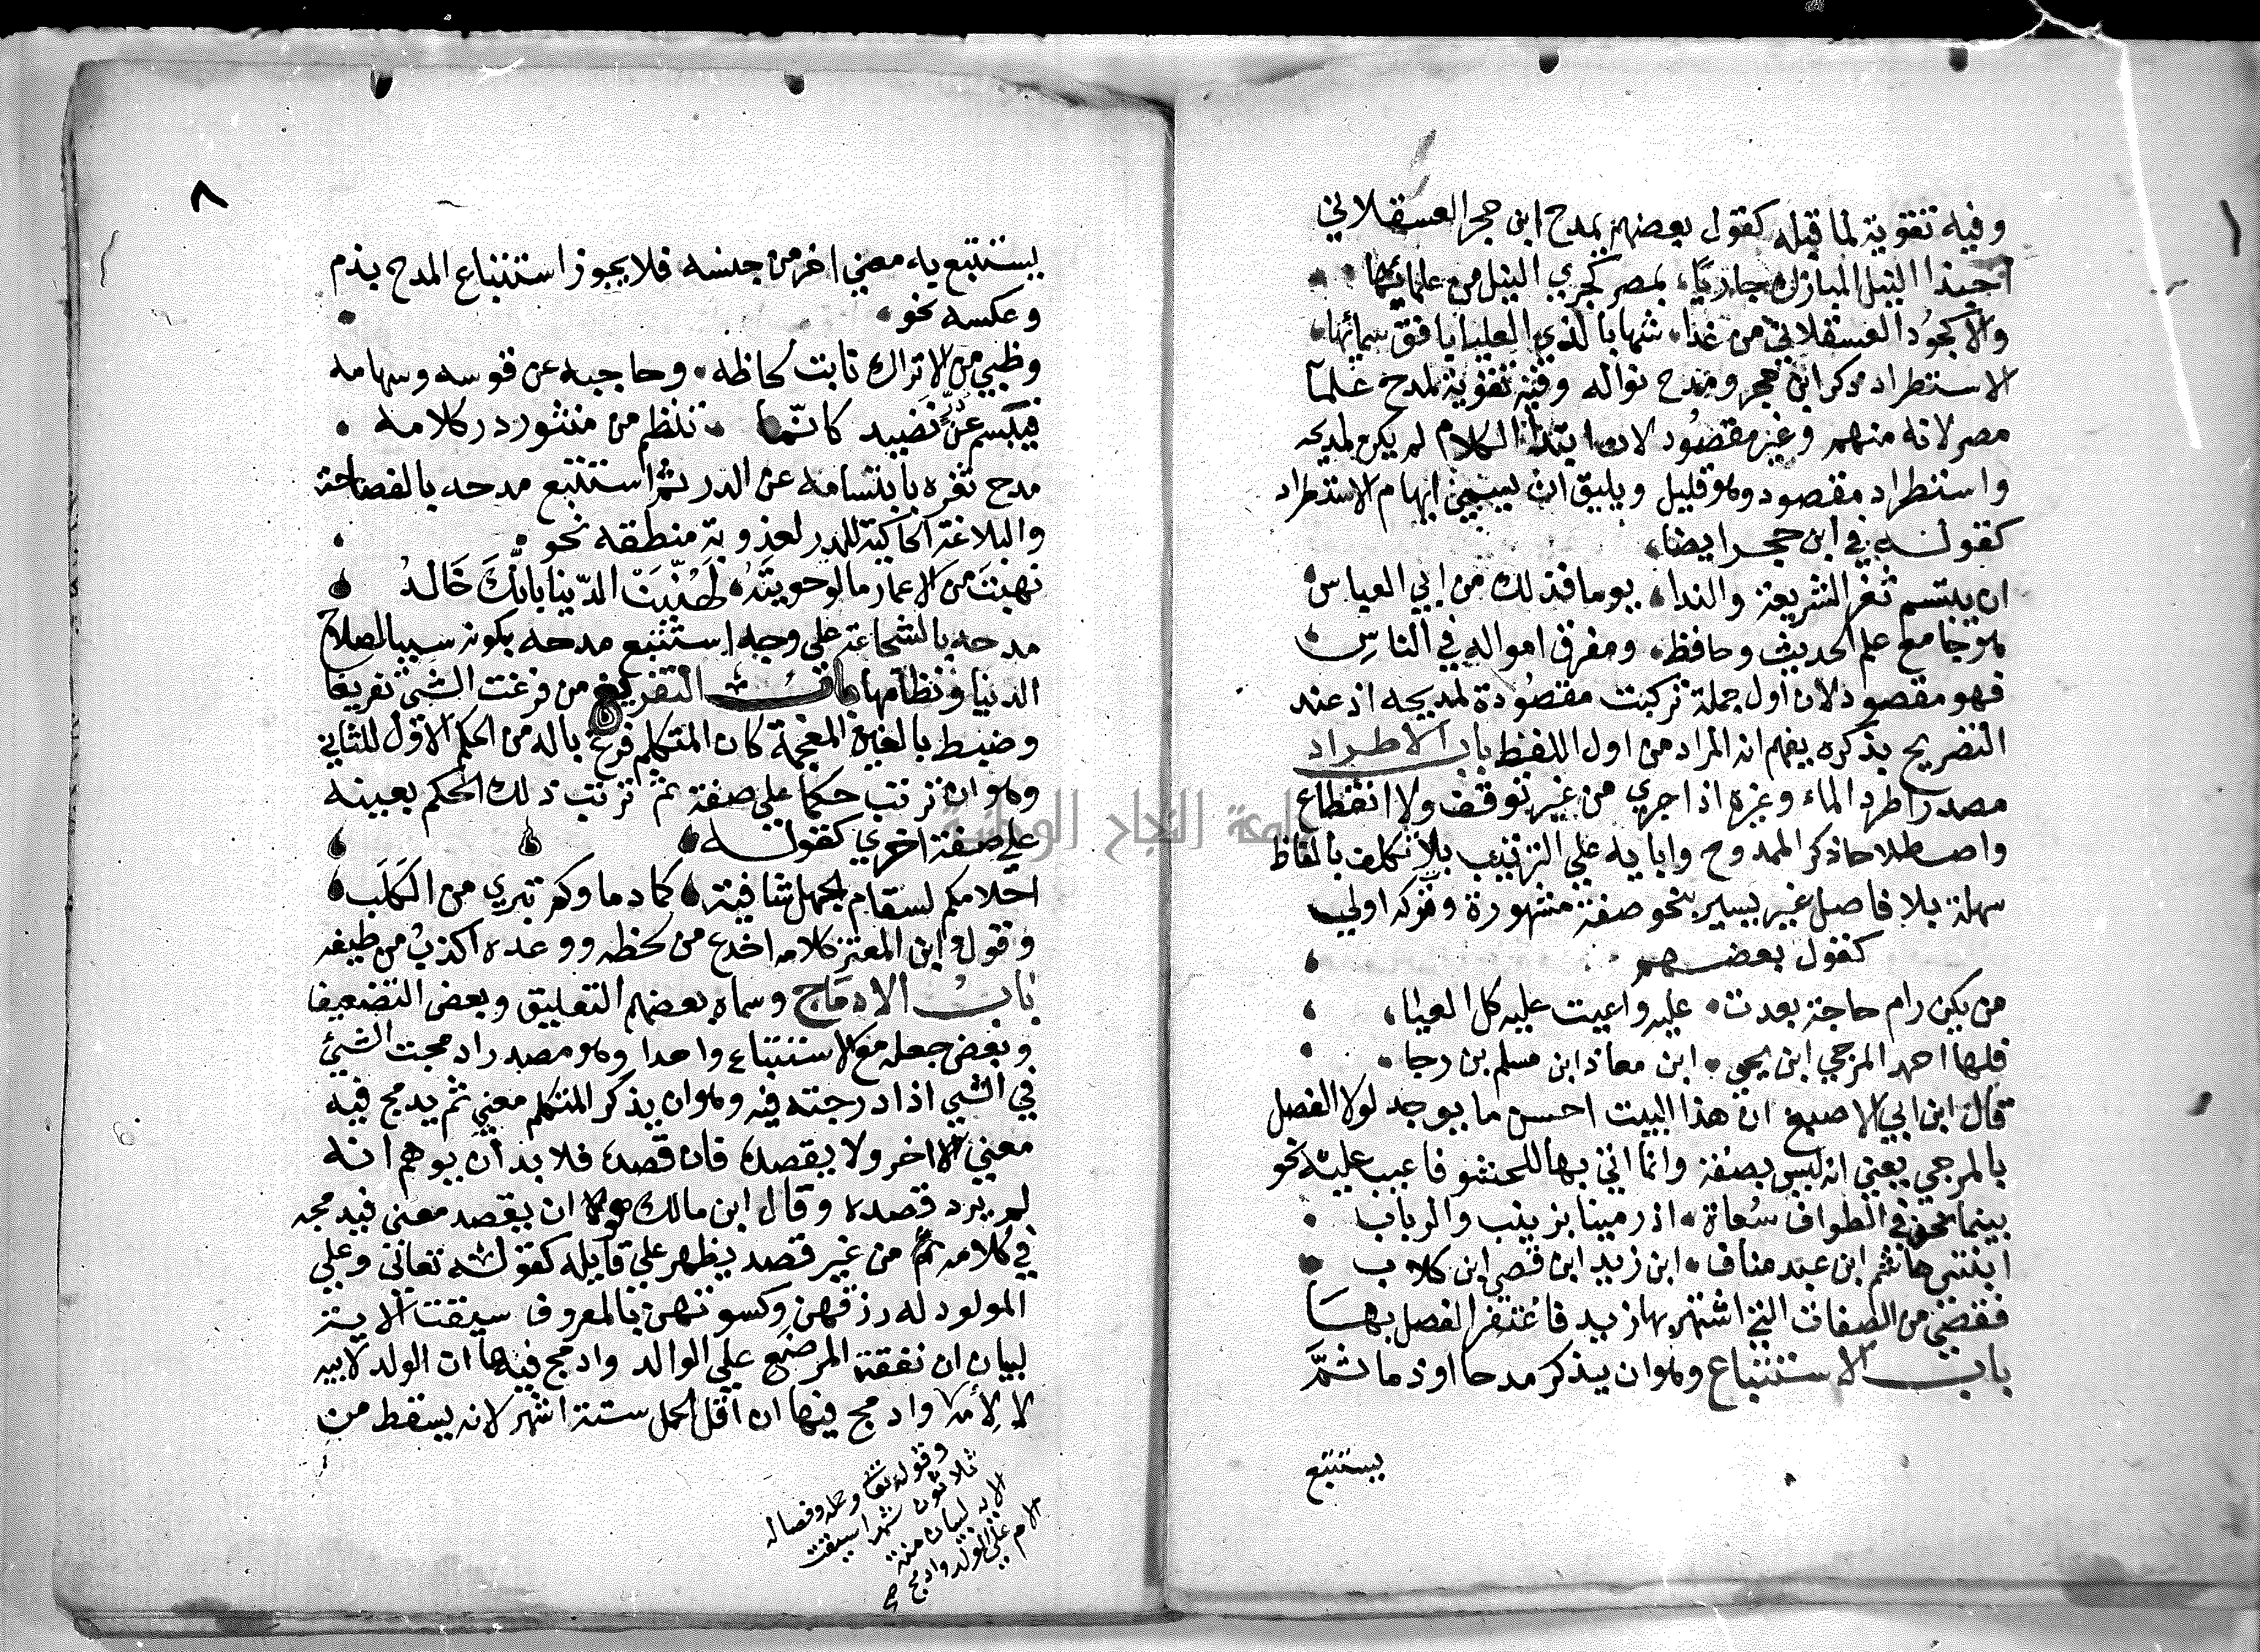 وفيه تقوية لما قبله كقول بعضهم يمدح ابن حجر العسقلاني
احبذا النيل المبارك جاريا، بمصر كجري النيل من علمائها
والا كجود العسقلاني من غدا، شهابا لذي العليا بافق سمائها
الاستطراد ذكر ابن حجر ومدح نواله وفيه تقوية لمدح علما
مصر لانه منهم وغير مقصود لان ابتدا الكلام لم يكن لمديحه
واستطراد مقصود وهو قليل ويليق ان يسمي ايهام الاستطراد
كقوله في ابن حجر ايضا،
ان يبتسم ثغر الشريعة والندا، يوما فذلك من ابي العباس
هو جامع علم الحديث وحافظ، ومفرق امواله في الناس
فهو مقصود لان اول جملة تركبت مقصودة لمديحه اذ عند
التصريح بذكره يفهم انه المراد من اول اللفظ باب الاطراد
مصدر اطرد الماء وغيره اذا جري من غير توقف ولا انقطاع
واصطلاحا ذكر الممدوح وابايه علي الترتيب بلا تكلف بالفاظ
سهلة بلا فاصل غير يسير نحو صفة مشهورة وتركه اولي
كقول بعضهم
من يكن رام حاجة بعدت، عليه واعيت عليه كل العيا،
فلها احمد المرجي ابن يحيي، ابن معاذ ابن مسلم بن رجا،
قال ابن ابي الاصبع ان هذا البيت احسن ما يوجد لولا الفصل
بالمرجي يعني انه ليس بصفة وانما اتي بها للحشو فاعيب عليه نحو
بينما نحن في الطواف سعاة، اذ رمينا بزينب والرباب
ابنتي هاشم ابن عبد مناف، ابن زيد ابن قصي ابن كلاب
فقصي من الصفات التي اشتهر بها زيد فاغتفر الفصل بها
باب الاستتباع وهو ان يذكر مدحا او ذما ثم
يستتبع
٨
يستتبع به معني اخر من جنسه فلا يجوز استتباع المدح بذم
وعكسه نحو
وظبي من الاتراك نابت لحاظه، وحاجبه عن قوسه وسهامه
فيبسم عن در نضيد كانما، تنظم من منثور در كلامه
مدح ثغره بابتسامه عن الدر ثم استتبع مدحه بالفصاحة
والبلاغة الحاكية للدر لعذوبة منطقه نحو
نهبت من الاعمار ما لو حويته، لهنيت الدنيا بانك خالد
مدحه بالشجاعة علي وجه استتبع مدحه بكونه سببا لصلاح
الدنيا ونظامها باب التفريع من فرعت الشئ تفريعا
وضبط بالغين المعجمة كان المتكلم فرغ باله من الحكم الاول للثاني
وهو ان ترتب حكما علي صفة ثم ترتب ذلك الحكم بعينه
علي صفة اخري كقوله
احلامكم لسقام الجهل شافية، كما دماوكم تبري من الكلب
وقول ابن المعتز كلامه اخدع من لحظه ووعده اكذب من طيفه
باب الادماج وسماه بعضهم التعليق وبعض التضعيف
وبعض جعله مع الاستتباع واحدا وهو مصدر ادمجت الشئ
في الشي اذا ادرجته فيه وهو ان يذكر المتكلم معني ثم يدمج فيه
معني اخر ولا يقصده فان قصده فلا بد ان يوهم انه
لم يرد قصده وقال ابن مالك هو ان يقصد معني فيدمجه
في كلامه من غير قصد يظهر علي قايله كقوله تعالي وعلي
المولود له رزقهن وكسوتهن بالمعروف سيقت الاية
لبيان ان نفقة المرضع علي الوالد وادمج فيها ان الولد لابيه
لا لأمه وادمج فيها ان اقل الحمل ستة اشهر لانه يسقط من
وقوله تعا وحمله وفصاله
ثلاثون شهرا سيقت
الاية لبيان منة
الام علي الولد وادمج
جامعة النجاح الوطنية